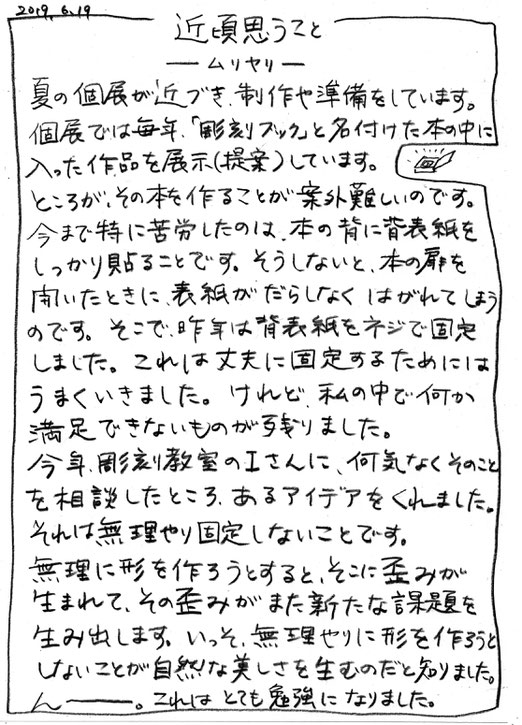 2019.6.19
近頃思うこと
ームリヤリー
夏の個展が近づき、制作や準備をしています。
個展では毎年、「彫刻ブック」と名付けた本の中に
入った作品を展示(提案)しています。
ところが、その本を作ることが案外難しいのです。
今まで特に苦労したのは、本の背に背表紙を
しっかり貼ることです。そうしないと、本の扉を
開いたときに、表紙がだらしなくはがれてしまう
のです。そこで、昨年は背表紙をネジで固定
しました。これは丈夫に固定するためには
うまくいきました。けれど、私の中で何か
満足できないものが残りました。
今年、彫刻教室のIさんに、何気なくそのこと
を相談したところ、あるアイデアをくれました。
それは無理やり固定しないことです。
無理に形を作ろうとすると、そこに歪みが
生まれて、その歪みがまた新たな課題を
生み出します。いっそ、無理やりに形を作ろうと
しないことが自然な美しさを生むのだと知りました。
んー。これはとても勉強になりました。